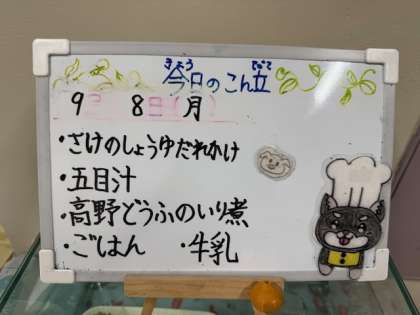 きょう こんだて
今日のこん立
9月 8日(月)
・さけのしょうゆだれかけ
・五目汁
・高野どうふのいり煮
・ごはん ・牛乳